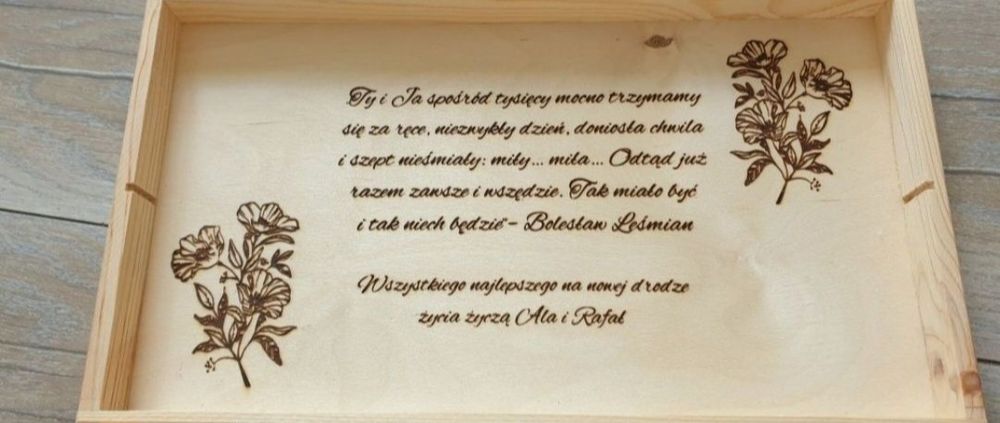 Ty i Ja spośród tysięcy mocno trzymamy
się za ręce, niezwykły dzień, doniosła chwila
i szept nieśmiały: miły... miła... Odtąd już
razem zawsze i wszędzie. Tak miało być
i tak niech będzie" – Bolesław Leśmian
Wszystkiego najlepszego na nowej drodze
życia życzą Ala i Rafał